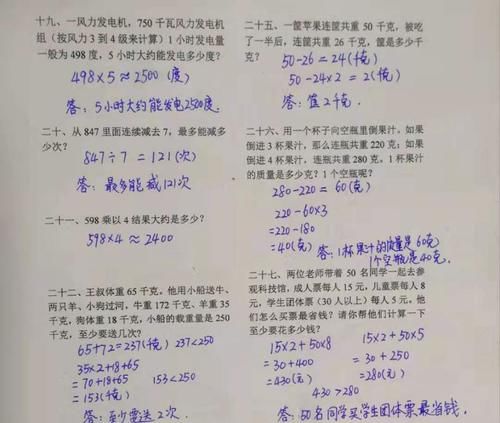 十九、一风力发电机，750 千瓦风力发电机
组（按风力 3 到 4 级来计算）1 小时发电量
一般为 498 度，5 小时大约能发电多少度？
498×5≈2500（度）
答：5小时大约能发电2500度.
二十、从 847 里面连续减去 7，最多能减多
少次？
847÷7=121（次）
答：最多能减121次
二十一、598 乘以 4 结果大约是多少？
598×4≈2400
二十二、王叔体重 65 千克，他用小船送牛、
两只羊、小狗过河，牛重 172 千克、羊重 35
千克，狗体重 18 千克，小船的载重量是 250
千克，至少要送几次？
65+72=237（千克） 237<250
35×2+18+65
=70+18+65 153<250
=153（千克）
答：至少需送2次.
二十五、一筐苹果连筐共重 50 千克，被吃
了一半后，连筐共重 26 千克，筐是多少千
克？
50-26=24（千克）
50-24×2=2（千克）
答：筐2千克.
二十六、用一个杯子向空瓶里倒果汁，如果
倒进 3 杯果汁，那么连瓶共重 220 克；如果
倒进 4 杯果汁，连瓶共重 280 克，1 杯果汁
的质量是多少克？1 个空瓶呢？
280-220=60（克）
220-60×3
=220-180
=40（克）
答：1杯果汁的质量是60克
1个空瓶是40克.
二十七、两位老师带着 50 名同学一起去参
观科技馆，成人票每人 15 元，儿童票每人 8
元，学生团体票（30 人以上）每人 5 元，他
们怎么买票最省钱？请你帮他们计算一下
至少要花多少钱？
15×2+50×8 15×2+50×5
=30+400 =30+250
=430（元） =280（元）
430>280
答：50名同学买学生团体票最省钱.